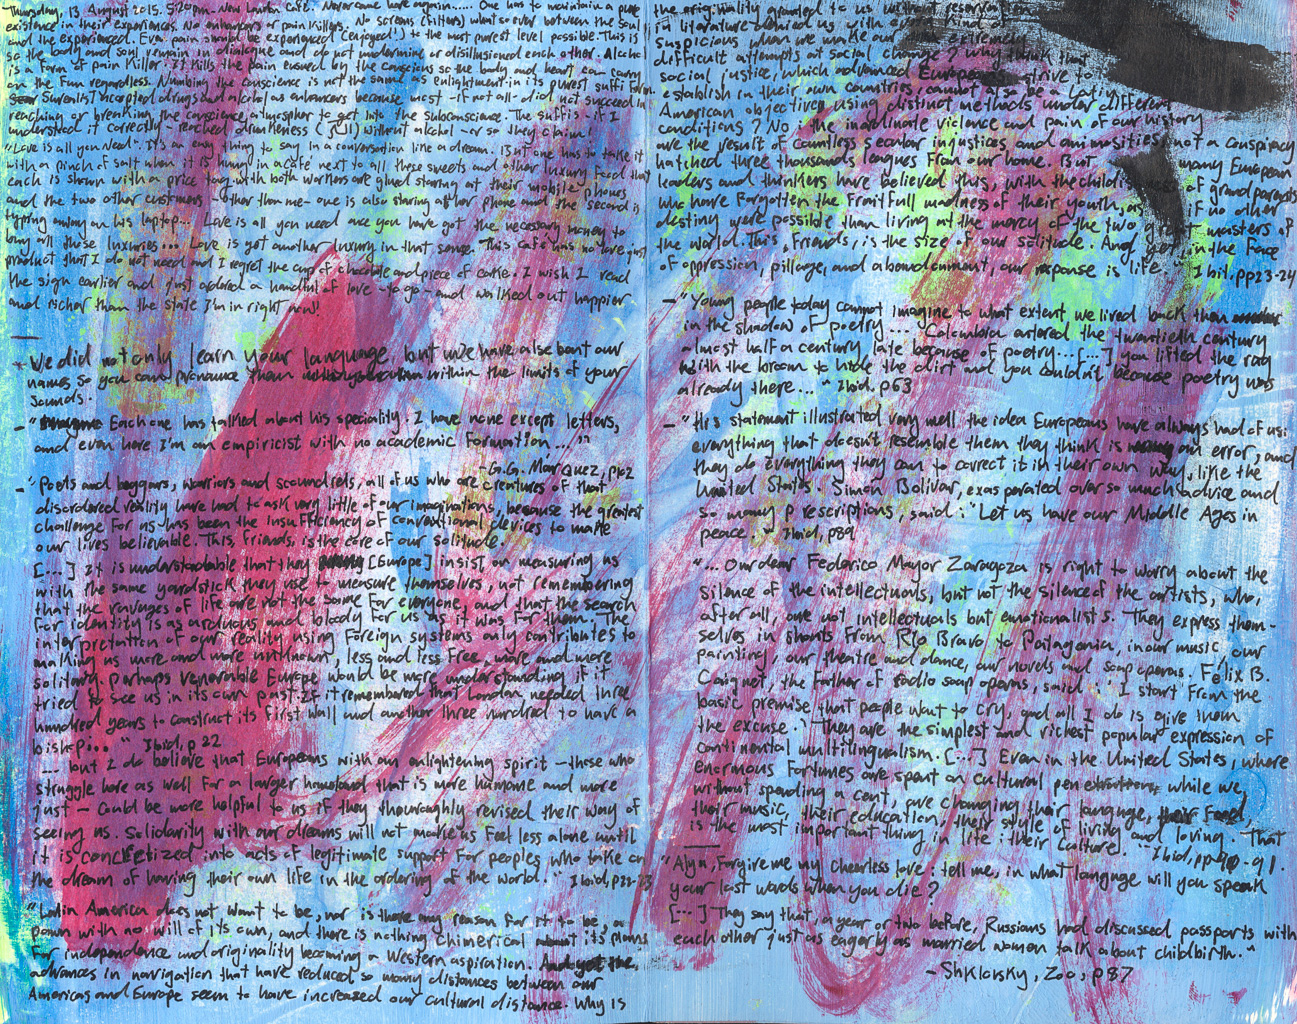 Thursday, 13 August 2015. 5:20pm. New London Cafe. Never come here again..... One has to maintain a pure
existence in their experiences. No enhancers or pain killers. No screens (filters) whatsoever between the soul
and the experienced. Even pain should be experienced (enjoyed!) to the most purest level possible. This is
so the body and soul remain in dialogue and do not undermine or disillusioned each other. Alcohol
is a form of pain killer. It kills the pain caused by the conscious so the body and heart can carry
on the fun regardless. Numbing the conscience is not the same as enlightment in its purest suffi form
Surealist accepted drugs and alcohol as enhancers because most - if not all - did not succeed in
reaching or breaking the conscience atmospher to get into the subconscience. The suffis - if I
understood it correctly - reached drunkeness () without alchol - or so they claim!
"Love is all you Need". It's an easy thing to say in a conversation like a dream. But one has to take it
with a pinch of salt when it is hung in a café next to all these sweets and other luxury food that
each is shown with a price tag with both workers are glued staring at their mobile phones
and the two other customers - other than me - one is also staring at her phone and the second is
typing away on his laptop... Love is all you need once you have got the necessary money to
buy all those luxuries... Love is yet another luxury in that sense. This café has no love, just
product that I do not need and I regret the cup of chocolate and piece of cake. I wish I read
the sign earlier and just ordered a handful of love - to go - and walked out happier
and richer than the state I'm in right now!
- We did not only learn your language, but we have also bent our
names so you can pronounce them within the limits of your
sounds.
- " Each one has talked about his speciality. I have none except letters,
and even here I'm an empiricist with no academic formation...."
- G.G. Marquez, p102
- "Poets and beggars, warriors and scoundrels, all of us who are creatures of that
disordered reality have had to ask very little of our imaginations, because the greatest
challenge for us has been the insufficiency of conventional devices to make
our lives believable. This, friends, is the core of our solitude.
[...] It is understandable that they [Europe] insist on measuring us
with the same yardstick they use to measure themselves, not remembering
that the ravages of life are not the same for everyone, and that the search
for identity is as arduous and bloody for us as it was for them. The
interpretation of our reality using foreign systems only contributes to
making us more and more unknown, less and less free, more and more
solitary. perhaps venerable Europe would be more understanding if it
tried to see us in its own past. If it remembered that London needed three
hundred years to construct its first wall and another three hundred to have a
bishop... " Ibid, p22
... but I do believe that Europeans with an enlightening spirit - those who
struggle here as well for a larger homeland that is more humane and more
just - could be more helpful to us if they thouroughly revised their way of
seeing us. Solidarity with our dreams will not make us feel less alone until
it is concretized into acts of legitimate support for peoples who take on
the dream of having their own life in the ordering of the world. " Ibid, p22-23
"Latin America does not want to be, nor is there any reason for it to be, a
pawn with no will of its own, and there is nothing chimerical its plans
for independence and originality becoming a Western aspiration. And yet the,
advances in navigation that have reduced so many distances between our
Americas and Europe seem to have increased our cultural distance. Why is
the originality granted to us without reservation
in literature denied us with
suspicious when we make our
difficult attempts at social change? why think that
social justice, which advanced Europeans strive to
establish in their own countries, cannot also be a Latin
American objective using distinct methods under different
conditions? No: the inordinate violence and pain of our history
are the result of countless secular injustices, and animosities, not a conspiracy
hatched three thousands leagues from our home. But many European
leaders and thinkers have believed this, with the childishness of grandparents
who have forgotten the fruitfull madness of their youth, as if no other
destiny were possible than living at the mercy of the two great masters of
the world. This, friends, is the size of our solitude. And yet, in the face
of oppression, pillage, and abandonment, our response is life." Ibid, pp23-24
- "Young people today cannot imagine to what extent we lived back then
in the shadow of poetry... Colombia entered the twentieth century
almost half a century late because of poetry...[...] you lifted the rag
with the broom to hide the dirt and you couldn't because poetry was
already there..." Ibid, p63
- "His statement illustrated very well the idea Europeans have always had of us:
everything that doesn't resemble them they think is an error, and
they do everything they can to correct it in their own way, like the
United States. Simón Bolívar, exasperated over so much advice and
so many prescriptions, said: "Let us have our Middle Ages in
peace." Ibid, p89
"... Our dear Federico Mayor Zaragoza is right to worry about the
silence of the intellectuals, but not the silence of the artists, who,
after all, are not intellectuals but emotionalists. They express them-
selves in shouts from Río Bravo to Patagonia, in our music, our
painting, our theatre and dance, our novels and soap operas. Félix B.
Caignet, the father of radio soap operas, said: "I start from the
basic premise that people want to cry, and all I do is give them
the excuse." They are the simplest and richest popular expression of
continental multilingualism. [...] Even in the United States, where
enormous fortunes are spent on cultural penetration, while we,
without spending a cent, are changing their language, their food,
their music, their education, their style of living and loving. That
is the most important thing in life: their culture." Ibid, pp90-91.
"Alya, forgive me my cheerless love: tell me, in what language will you speak
your last words when you die?
[...] They say that, a year or two before, Russians had discussed passports with
each other just as eagerly as married women talk about childbirth."
- Shklovsky, Zoo, p87